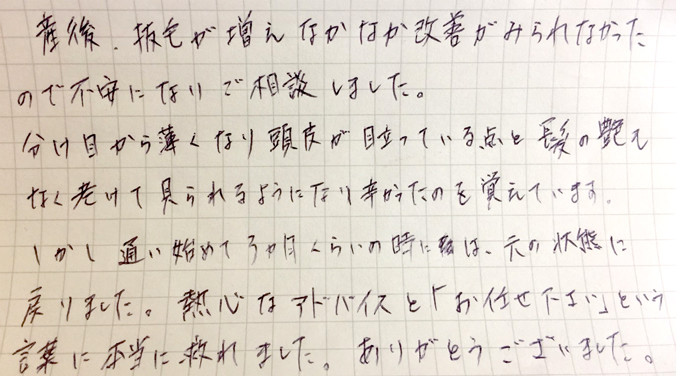 産後、抜毛が増えなかなか改善がみられなかった
ので不安になりご相談しました。
分け目から薄くなり頭皮が目立っている点と髪の艶も
なく老けて見られるようになり辛かったのを覚えています。
しかし通い始めて3ヵ月くらいの時には、元の状態に
戻りました。熱心なアドバイスと「お任せ下さい」という
言葉に本当に救れました。ありがとうございました。